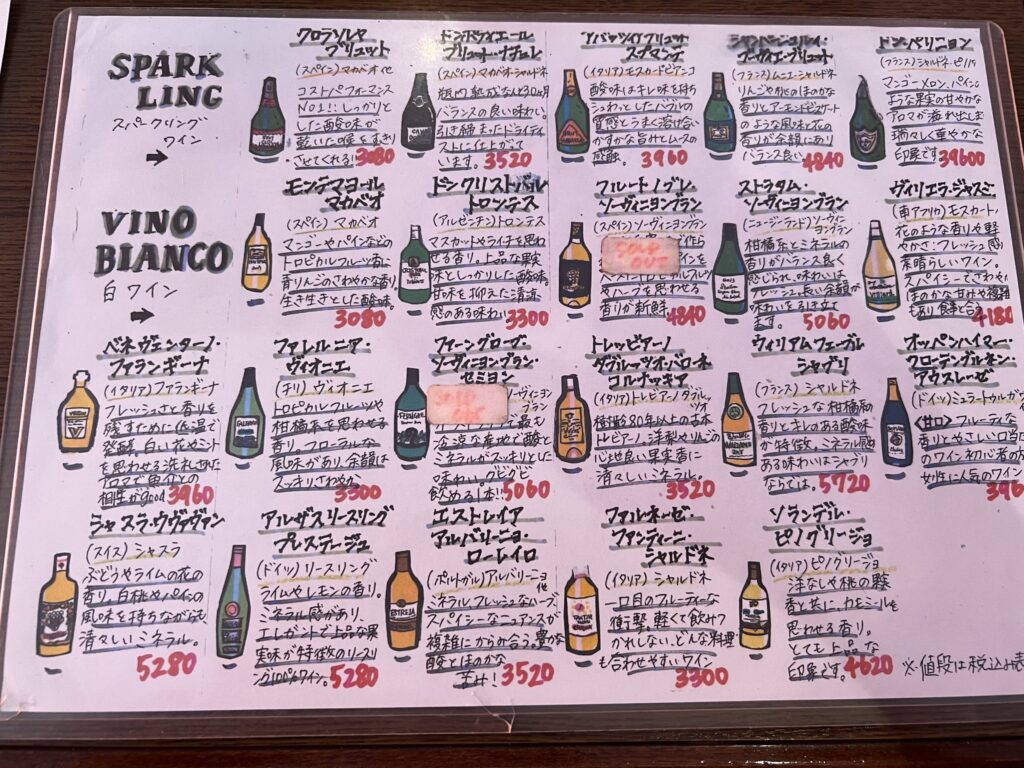 SPARK
LING
スパークリング
ワイン
クロラソルヤ
ブリュット
(スペイン)マカベオ他
コストパフォーマンス
NO1!!しっかりと
した酸味が
乾いた喉をすっきり
させてくれる!!3080
ブリュット・ナチュレ
(スペイン)マカベオ・シャルドネ
瓶内熟成なんと30ヶ月
バランスの良い味わい。
引き締まったドライテイ
ストに仕上がって
います。3520
スプマンテ
(イタリア)モスカートビアンコ
酸味はキレ味を持ち
かすかな旨みとムースの
3960
(フランス)ムニエ・シャルドネ
りんごや桃のほのかな
香りとアーモンドビスケット
のような風味と花の
香りが余韻にあり
バランス良い4840
ドン・ペリニョン
(フランス)シャルドネ・ピノノワ
マンゴー・メロン、パインの
ような果実の甘やかな
アロマが溢れ出しま
瑞々しく華やかな
印象です39600
VINO
BIANCO
白ワイン
モンテマヨール
マカベオ
(スペイン)マカベオ
マンゴーやパインなどの
トロピカルフルーツ香に
青りんごのさわやかな香り。
生き生きとした酸味。
3080
ドン クリストバル
トロンテス
(アルゼンチン)トロンテス
マスカットやライチを思わ
せる香り。上品な果実
味としっかりした酸味
甘味を抑えた清涼
感のある味わい 3300
フルート ノブレ・
ソーヴィニヨンブラン
(スペイン)ソーヴィニヨンブラン
SOLD
OUT
ハーブを思わせる
香りが新鮮 4840
ストラタム・
ソーヴィニヨンブラン
(ニュージーランド)ソーヴィ
ニヨンブラン
柑橘系とミネラルの
香りがバランス良く
感じられ、味わいは
フレッシュ。長い余韻が
味わいを引き立て
ます。5060
ヴィリエラ・ジャスミ
(南アフリカ)モスカート/
花のような香りや軽
やかさ:フレッシュ感が
素晴らしいワイン。
スパイシーでさわやか
ほのかな甘みや複雑
もあり食と合う 4180
ベネヴェンターノ・
ファランギーナ
(イタリア)ファランギーナ
フレッシュさと香りを
残すために低温で
発酵。白い花やミント
を思わせる洗礼された
アロマで魚介との
相性がgood 3960
ファレルニア・
ヴィオニエ
(チリ)ヴィオニエ
トロピカルフルーツや
柑橘系を思わせる
香り。フローラルな
風味があり、余韻は
スッキリさわやか
3300
フィーングローブ・
ソーヴィニヨンブラン・
セミヨン
ソーヴィニヨン
ブラン
SOLD
OUT
で最も
冷涼な産地で酸と
ミネラルがスッキリとした
味わい。グビグビ
飲める1本!!5060
トレッビアーノ
ダブルッツオ・バローネ
コルナッキア
(イタリア)トレビアーノダブルッ
ツオ
樹齢80年以上の古木
トレビアーノ。洋梨やりんごの
心地良い果実香に
清々しいミネラル。
3520
ウィリアムフェーブル
シャブリ
(フランス)シャルドネ
フレッシュな柑橘系の
香りとキレのある酸味
が特徴。ミネラル感の
ある味わいはシャブリ
ならでは。5720
オッペンハイマー・
クローテンブルネン・
アウスレーゼ
(ドイツ)ミュラートゥルガウ
《甘口》フルーティな
香りとやさしい口当
のワイン初心者の方
女性に人気のワイン
396
シャスラ・ウヴァヴァン
(スイス)シャスラ
ぶどうやライムの花の
香り。白桃やパインの
風味を持ちながらも、
清々しいミネラル。
5280
アルザスリースリング
プレステージュ
(ドイツ)リースリング
ライムやレモンの香り。
ミネラル感があり、
エレガントで上品な果
実味が特徴のリースリ
ング100%ワイン。5280
エストレイア
アルバリーニョ・
ローレイロ
(ポルトガル)アルバリーニョ
他
ミネラル、フレッシュなハーブ
スパイシーなニュアンスが
複雑にからみ合う。豊かな
酸とほのかな
苦み!3520
ファルネーゼ・
ファンティーニ・
シャルドネ
(イタリア)シャルドネ
一口目のフルーティーな
衝撃。軽くて飲みつ
かれしない。どんな料理
も合わせやすいワイン
3300
ソランデル・
ピノグリージョ
(イタリア)ピノグリージョ
洋なしや桃の果実
香と共に、カモミールを
思わせる香り。
とても上品な
印象です。4620
※値段は税込み表